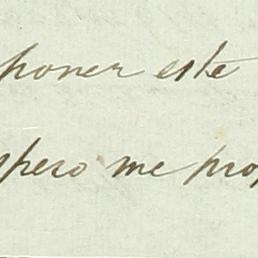 poner este
spero me prop